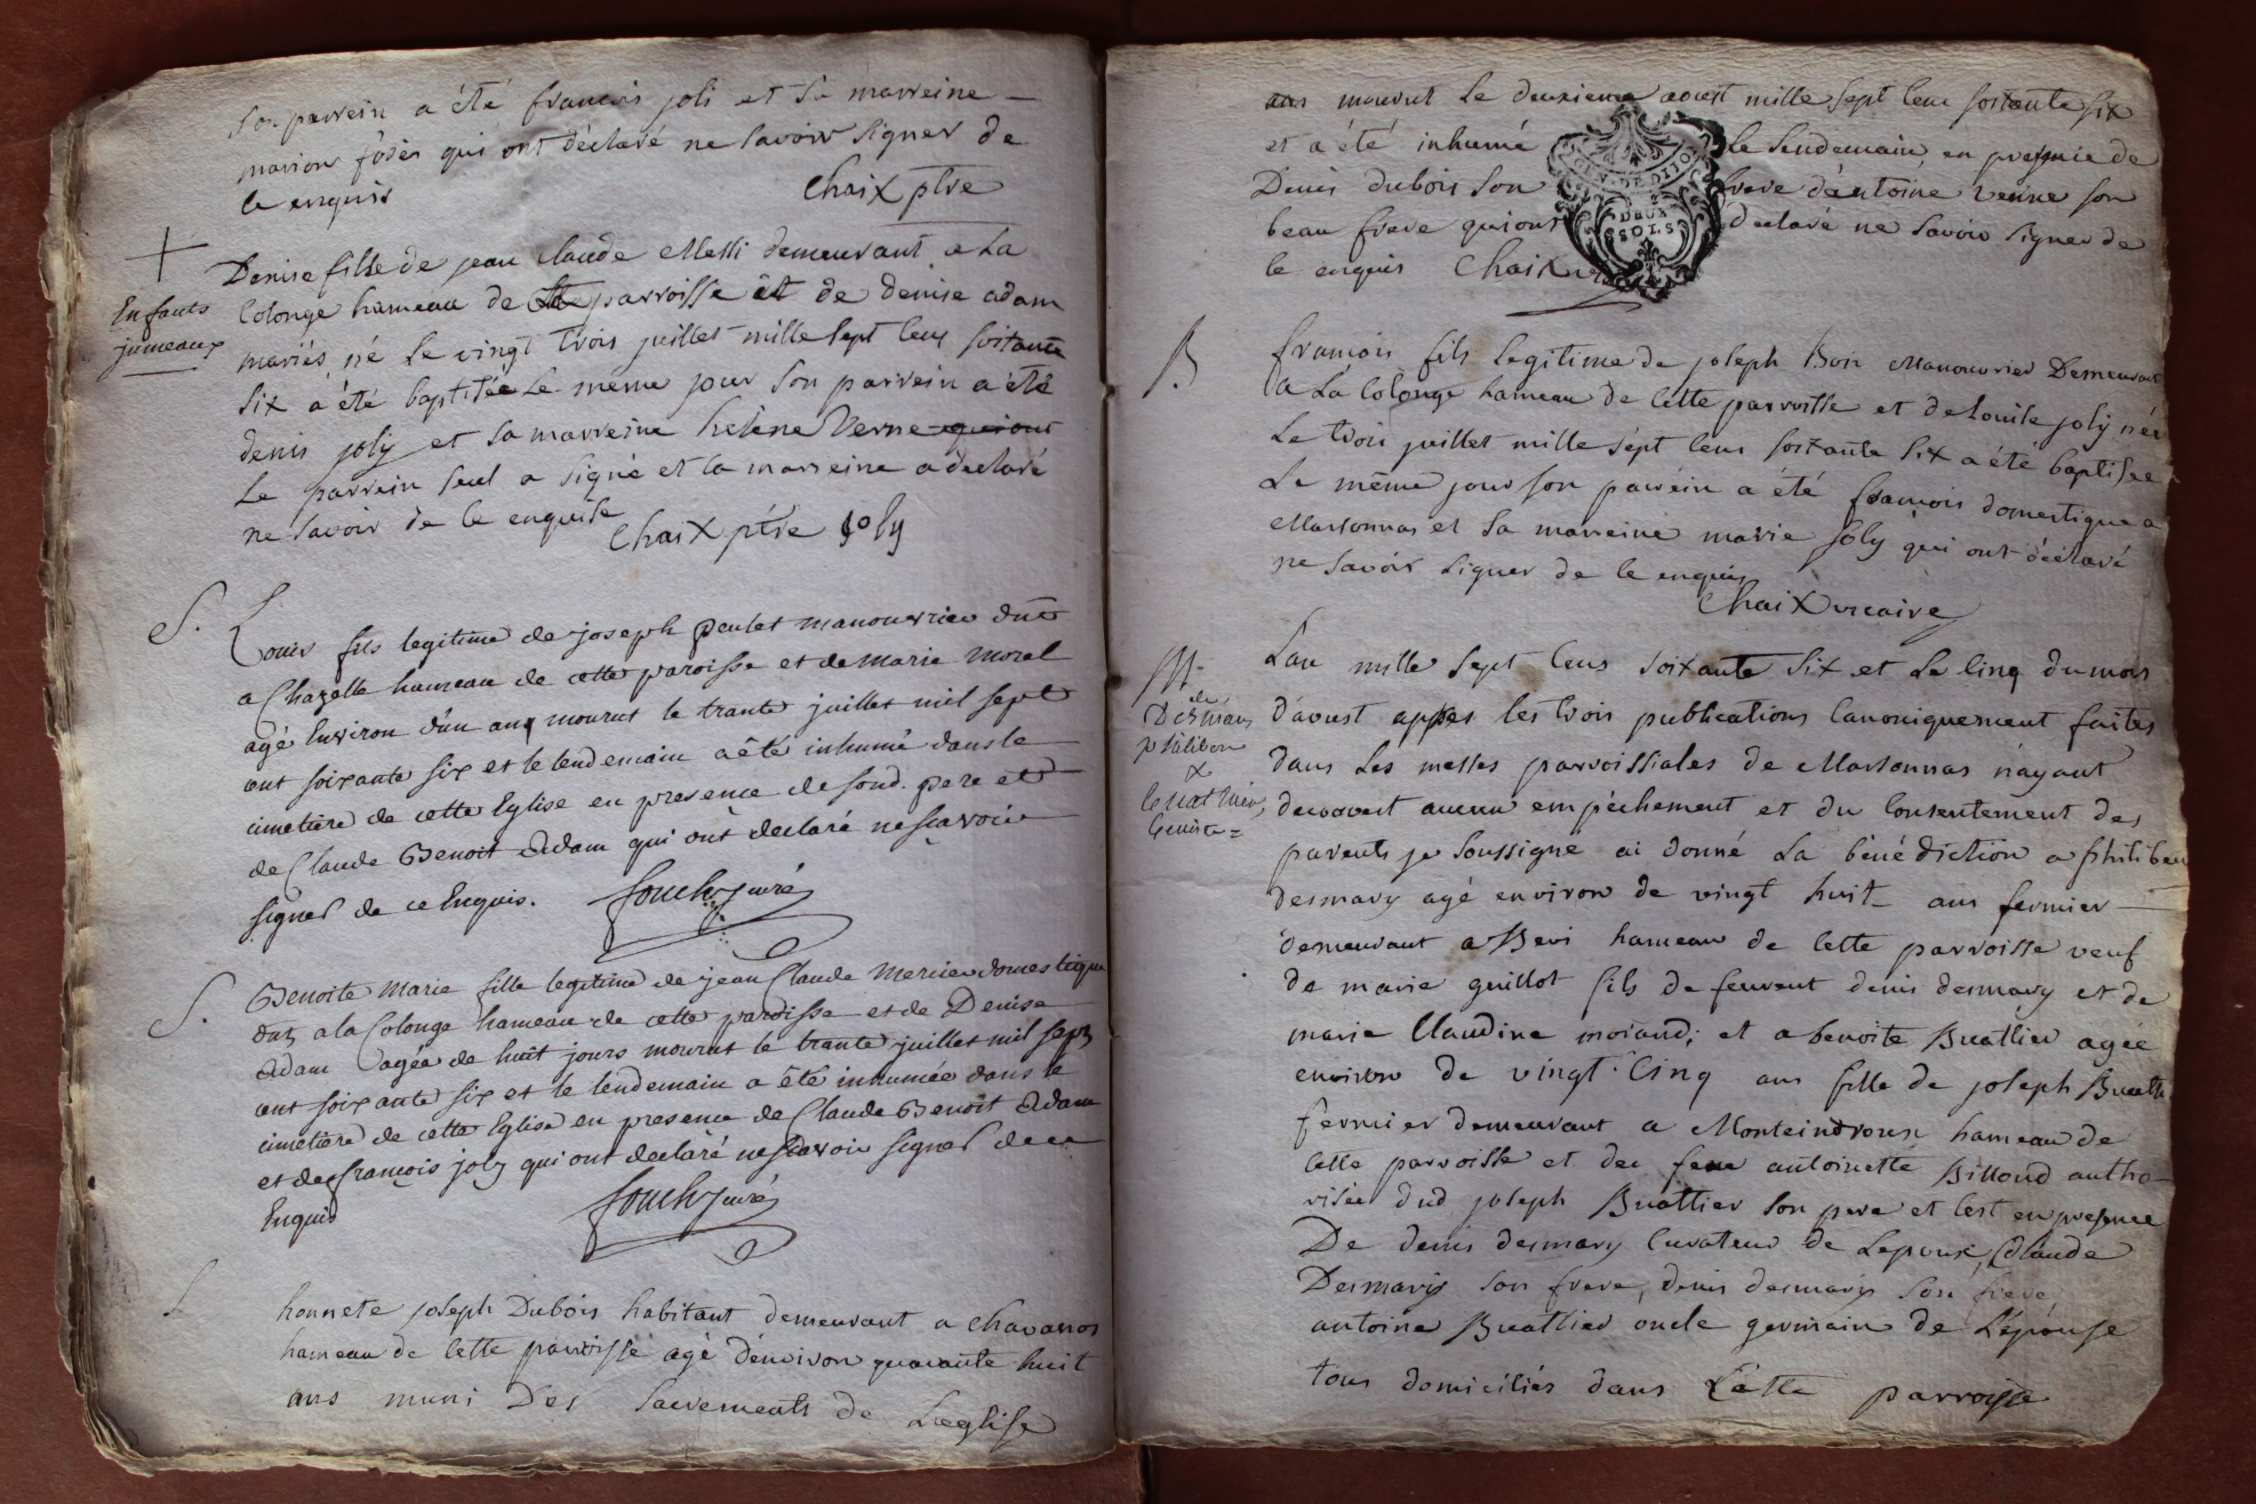 son parrein a été francois joli et sa marreine
marion josès qui ont déclaré ne savoir signer de
ce enquis
Chaix ptre
Enfants
jumeaux
Denise fille de jean Claude Messi demeurant a La
Colonge hameau de cette parroisse et de denise adam
mariés né le vingt trois juillet mille sept cens soixante
six a été baptisée le meme jour son parrein a été
denis joly et sa marreine helene Verne qui ont
Le parrein seul a signé et la marreine a declaré
ne savoir de ce enquise
Chaix ptre joly
S.
Louis fils legitime de joseph peulet manouvrier dmt
a Chazelle hameau de cette paroisse et de Marie Morel
agé Environ d'un ans mourut le trante juillet mil sept
cent soixante six et le lendemain a été inhumé dans le
cimetiere de cette Eglise en presence de sond. pere et
de Claude Benoit Adam qui ont declaré ne scavoir
signer de ce Enquis.
fouchy curé
S.
Benoite Marie fille legitime de jean Claude Mercier domestique
dmt a la Colonge hameau de cette paroisse et de Denise
Adam agée de huit jours mourut le trante juillet mil sept
cent soixante six et le lendemain a été inhumée dans le
cimetiere de cette Eglise en presence de Claude Benoit Adam
et de francois joly qui ont declaré ne scavoir signer de ce
Enquis
fouchy curé
S
honnete joseph Dubois habitant demeurant a Chavanos
hameau de cette parroisse agé d'environ quarante huit
ans muni Des sacrements de L'eglise
ans mourut le deuxieme aoust mille sept cens soixante six
et a été inhumé le lendemain en presence de
Denis dubois son frere d'antoine Venne son
beau frere qui ont declaré ne savoir signer de
ce enquis Chaix
DEUX
SOLS
B
francois fils legitime de joseph Bon Manouvrier Demeurant
a La Colonge hameau de cette parroisse et de Louise joly né
Le trois juillet mille sept cens soixante six a été baptisée
Le même jour son parrein a été francois domestique a
Marsonnas et sa marreine marie joly qui ont déclaré
ne savoir signer de ce enquis
Chaix vicaire
M.
de
Desmaris
philibert
&
benoite
Lan mille sept cens soixante six et le cinq du mois
d'aoust appes les trois publications Canoniquement faites
dans Les messes parroissiales de Marsonnas n'ayant
decouvert aucun empéchement et du Consentement des
parents je soussigne ai donné La bénédiction a philibert
desmary agé environ de vingt huit ans fermier
demeurant a Bevi hameau de cette parroisse veuf
de marie guillot fils de feu denis desmary et de
marie Claudine morand; et a benoite Buattier agée
environ de vingt Cinq ans fille de joseph Buattier
fermier demeurant a Monteindroux hameau de
cette parroisse et de feue antoinette Billoud autho
risée dud joseph Buattier son pere et cest en presence
De denis desmary Curateur de Lepoux, Claude
Desmaris son frere, denis desmaris son frere
antoine Buattier oncle germain de L'épouse
tous domiciliés dans Cette parroisse